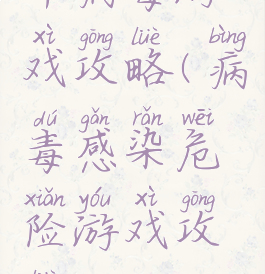 xì gōng lüè bìng
戏攻略(病
dú gǎn rǎn wēi
毒感染危
xiǎn yóu xì gōng
险游戏攻